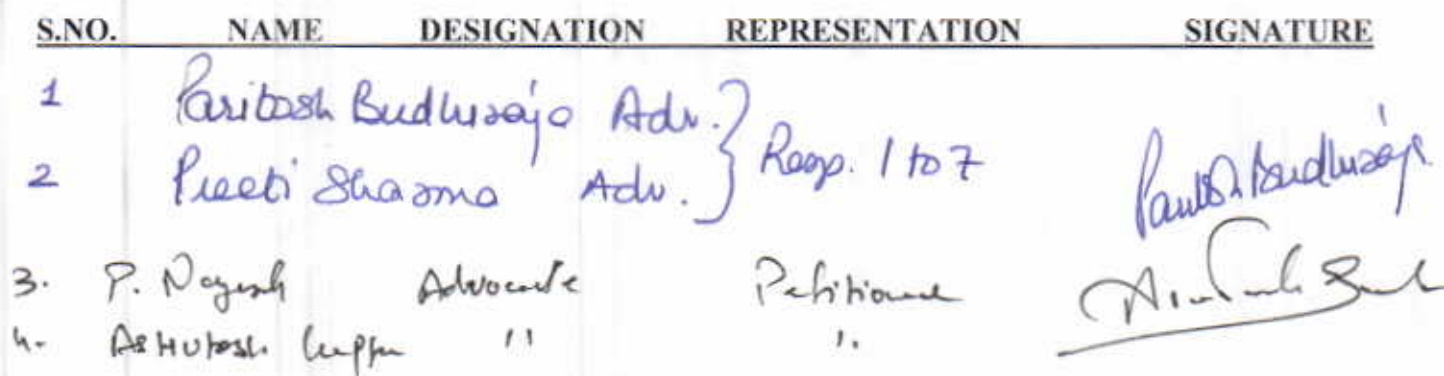 S.NO. NAME DESIGNATION REPRESENTATION SIGNATURE
1 Paritosh Budhiraja Adv. } Resp. 1 to 7 Paritosh Budhiraja
2 Preeti Sharma Adv.
3. P. Nagesh Advocate Petitioner
4. Ashutosh Gupta " "